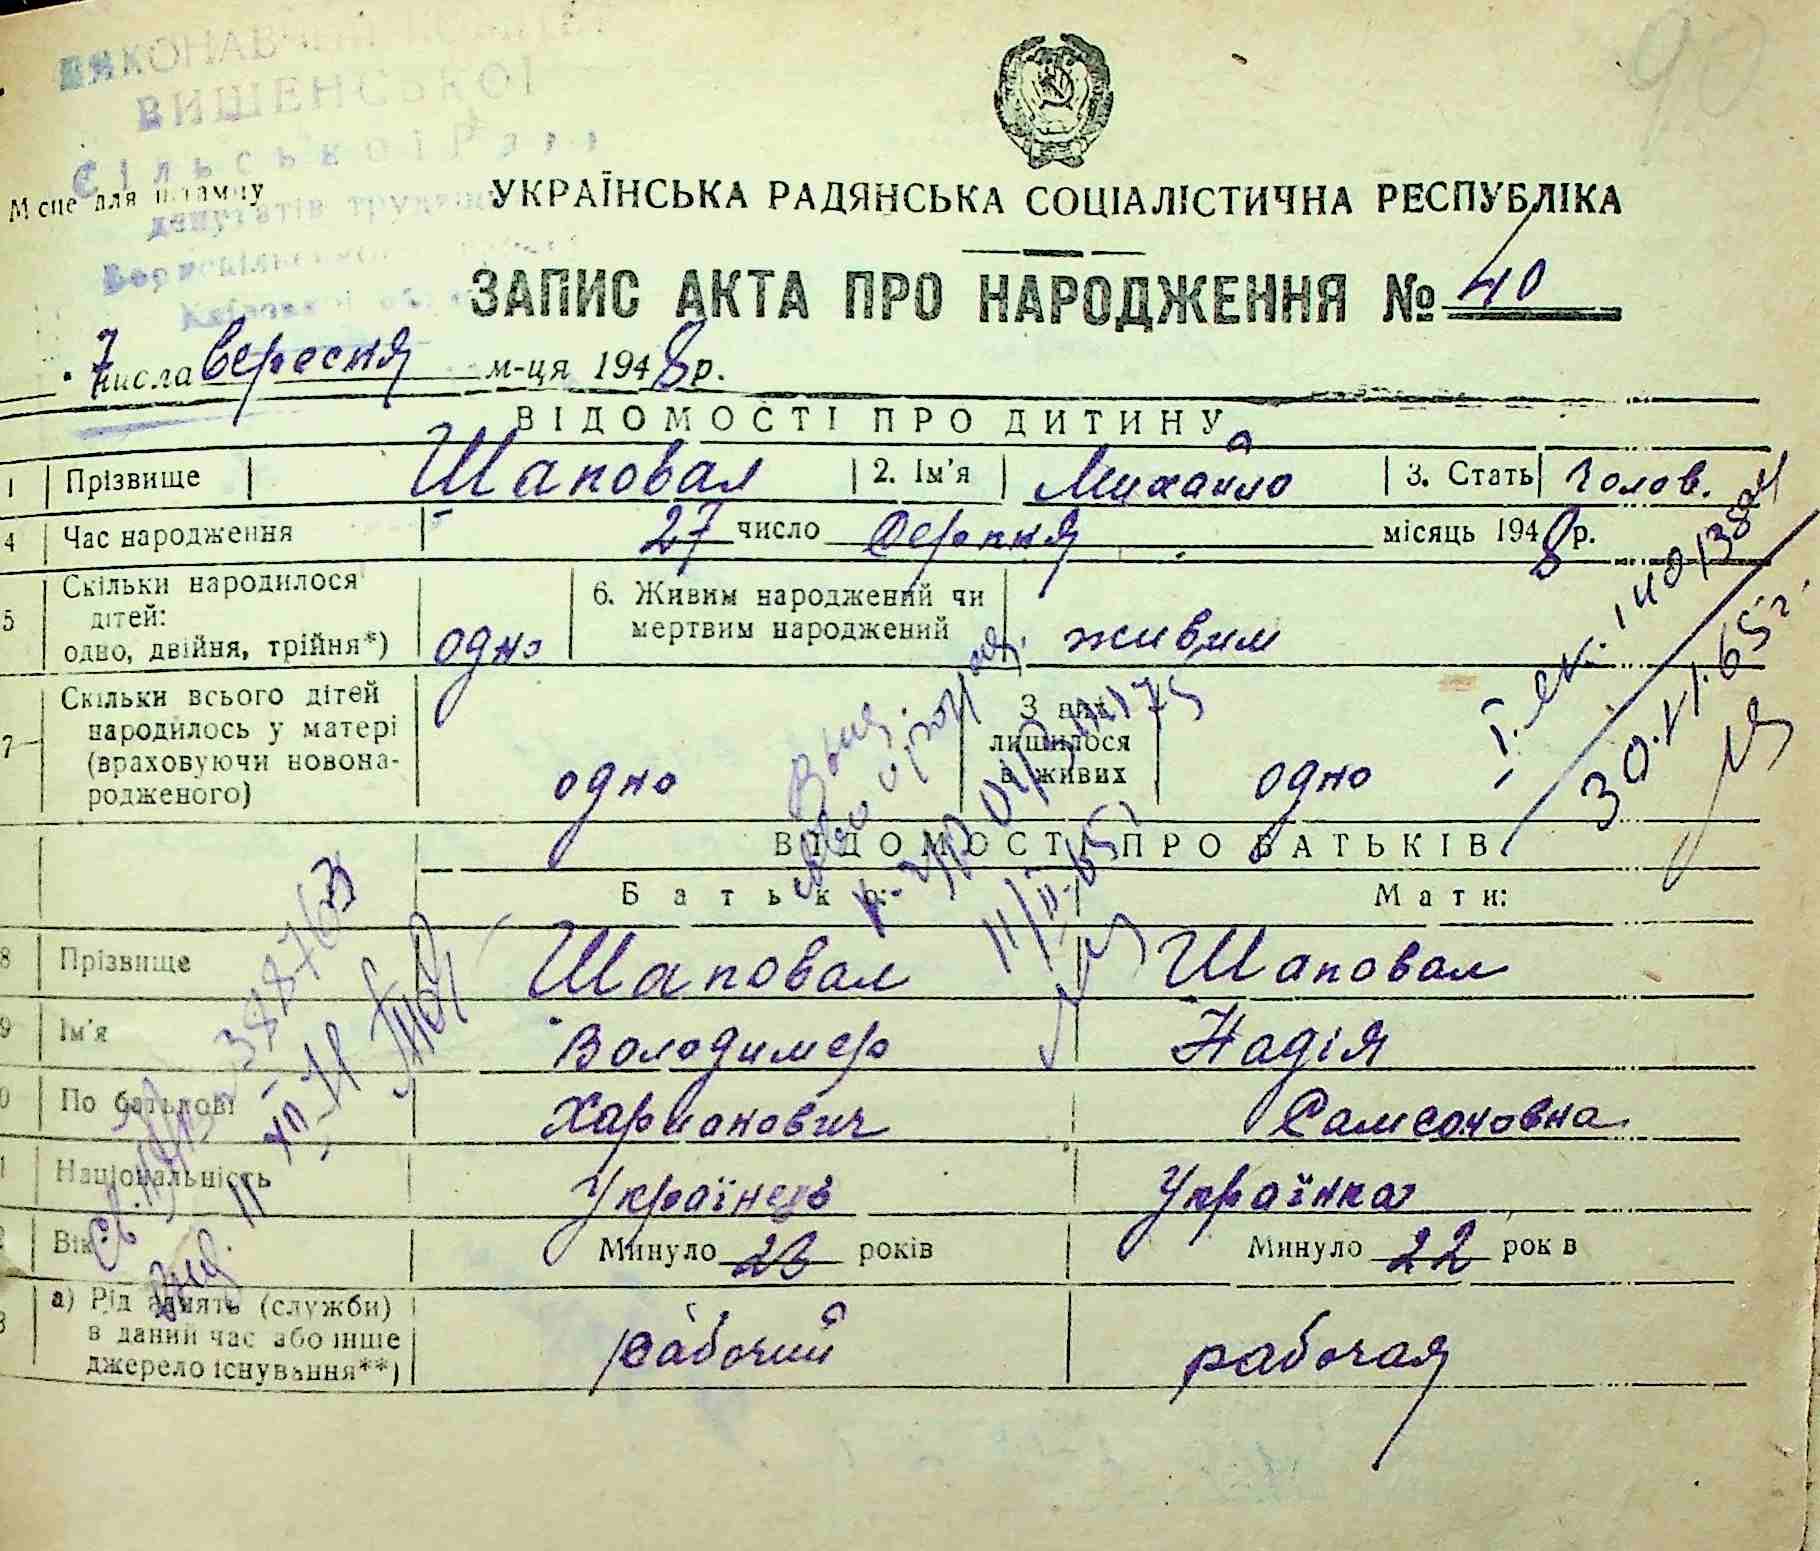 ВИКОНАВЧИЙ КОМІТЕТ
ВИШЕНСЬКОЇ
Сільської Ради
депутатів трудящ
Бориспільського
Київської обл
90
Місце для штампу
УКРАЇНСЬКА РАДЯНСЬКА СОЦІАЛІСТИЧНА РЕСПУБЛІКА
ЗАПИС АКТА ПРО НАРОДЖЕННЯ № 40
7 числа вересня м-ця 1948 р.
ВІДОМОСТІ ПРО ДИТИНУ
1 Прізвище Шаповал 2. Ім'я Михайло 3. Стать Чолов.
4 Час народження 27 число Серпня місяць 1948 р.
5 Скільки народилося дітей: одно, двійня, трійня*) одно 6. Живим народжений чи мертвим народжений живим
7 Скільки всього дітей народилось у матері (враховуючи новонародженого) одно З них лишилося в живих одно
30.VI.65г.
11/II-65
ВІДОМОСТІ ПРО БАТЬКІВ
Батько: Мати:
8 Прізвище Шаповал Шаповал
9 Ім'я Володимер Надія
0 По батькові Харионович Самсоновна
1 Національність Українець Українка
2 Вік Минуло 23 років Минуло 22 рок в
3 а) Рід занять (служби) в даний час або інше джерело існування**) рабочий рабочая